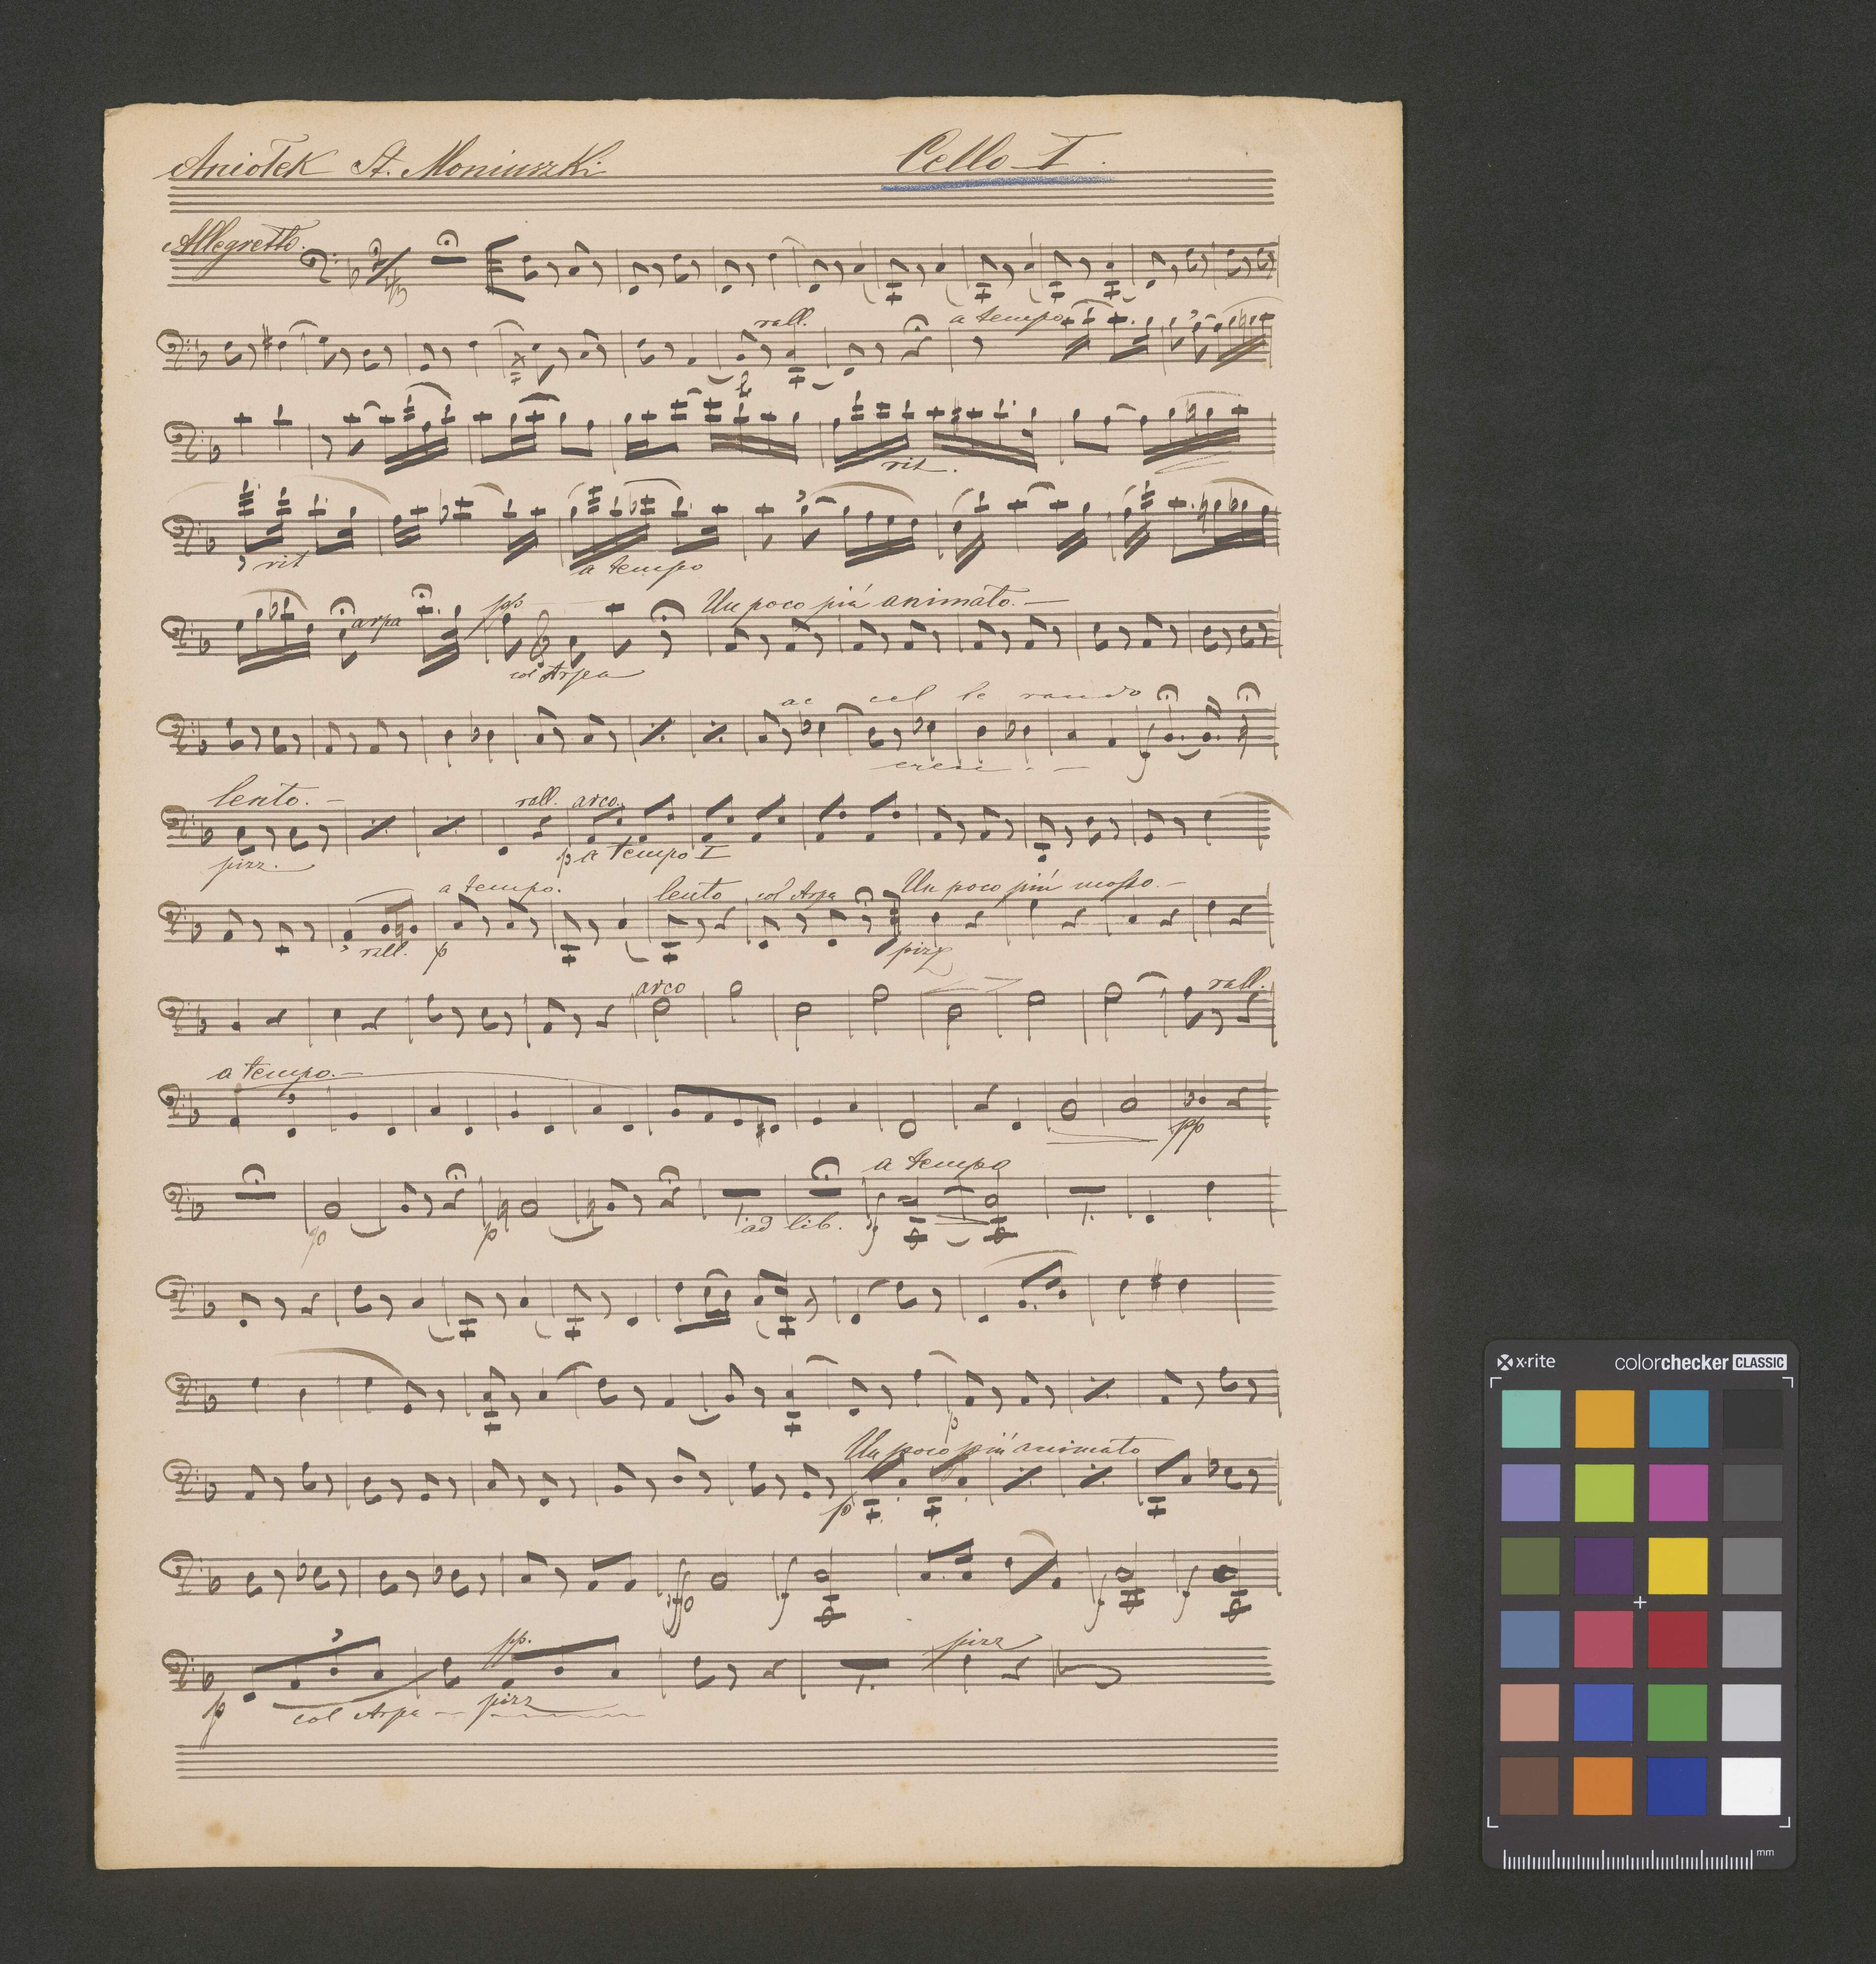 Aniołek St. Moniuszki Cello I.
Allegretto.
rall. a tempo
3
rit.
3
rit a tempo
arpa pp Un poco più animato.
col Arpa
ac cel le rando
cresc.
f
lento. rall. arco.
pizz. p a tempo I
a tempo. lento col Arpa Un poco più mosso.
rall. p pizz
arco rall.
a tempo.
pp
a tempo
p p ad lib. f
p
Un poco più animato
p
f f f
3 pp. pizz
p col Arpa pizz
x·rite colorchecker CLASSIC
mm